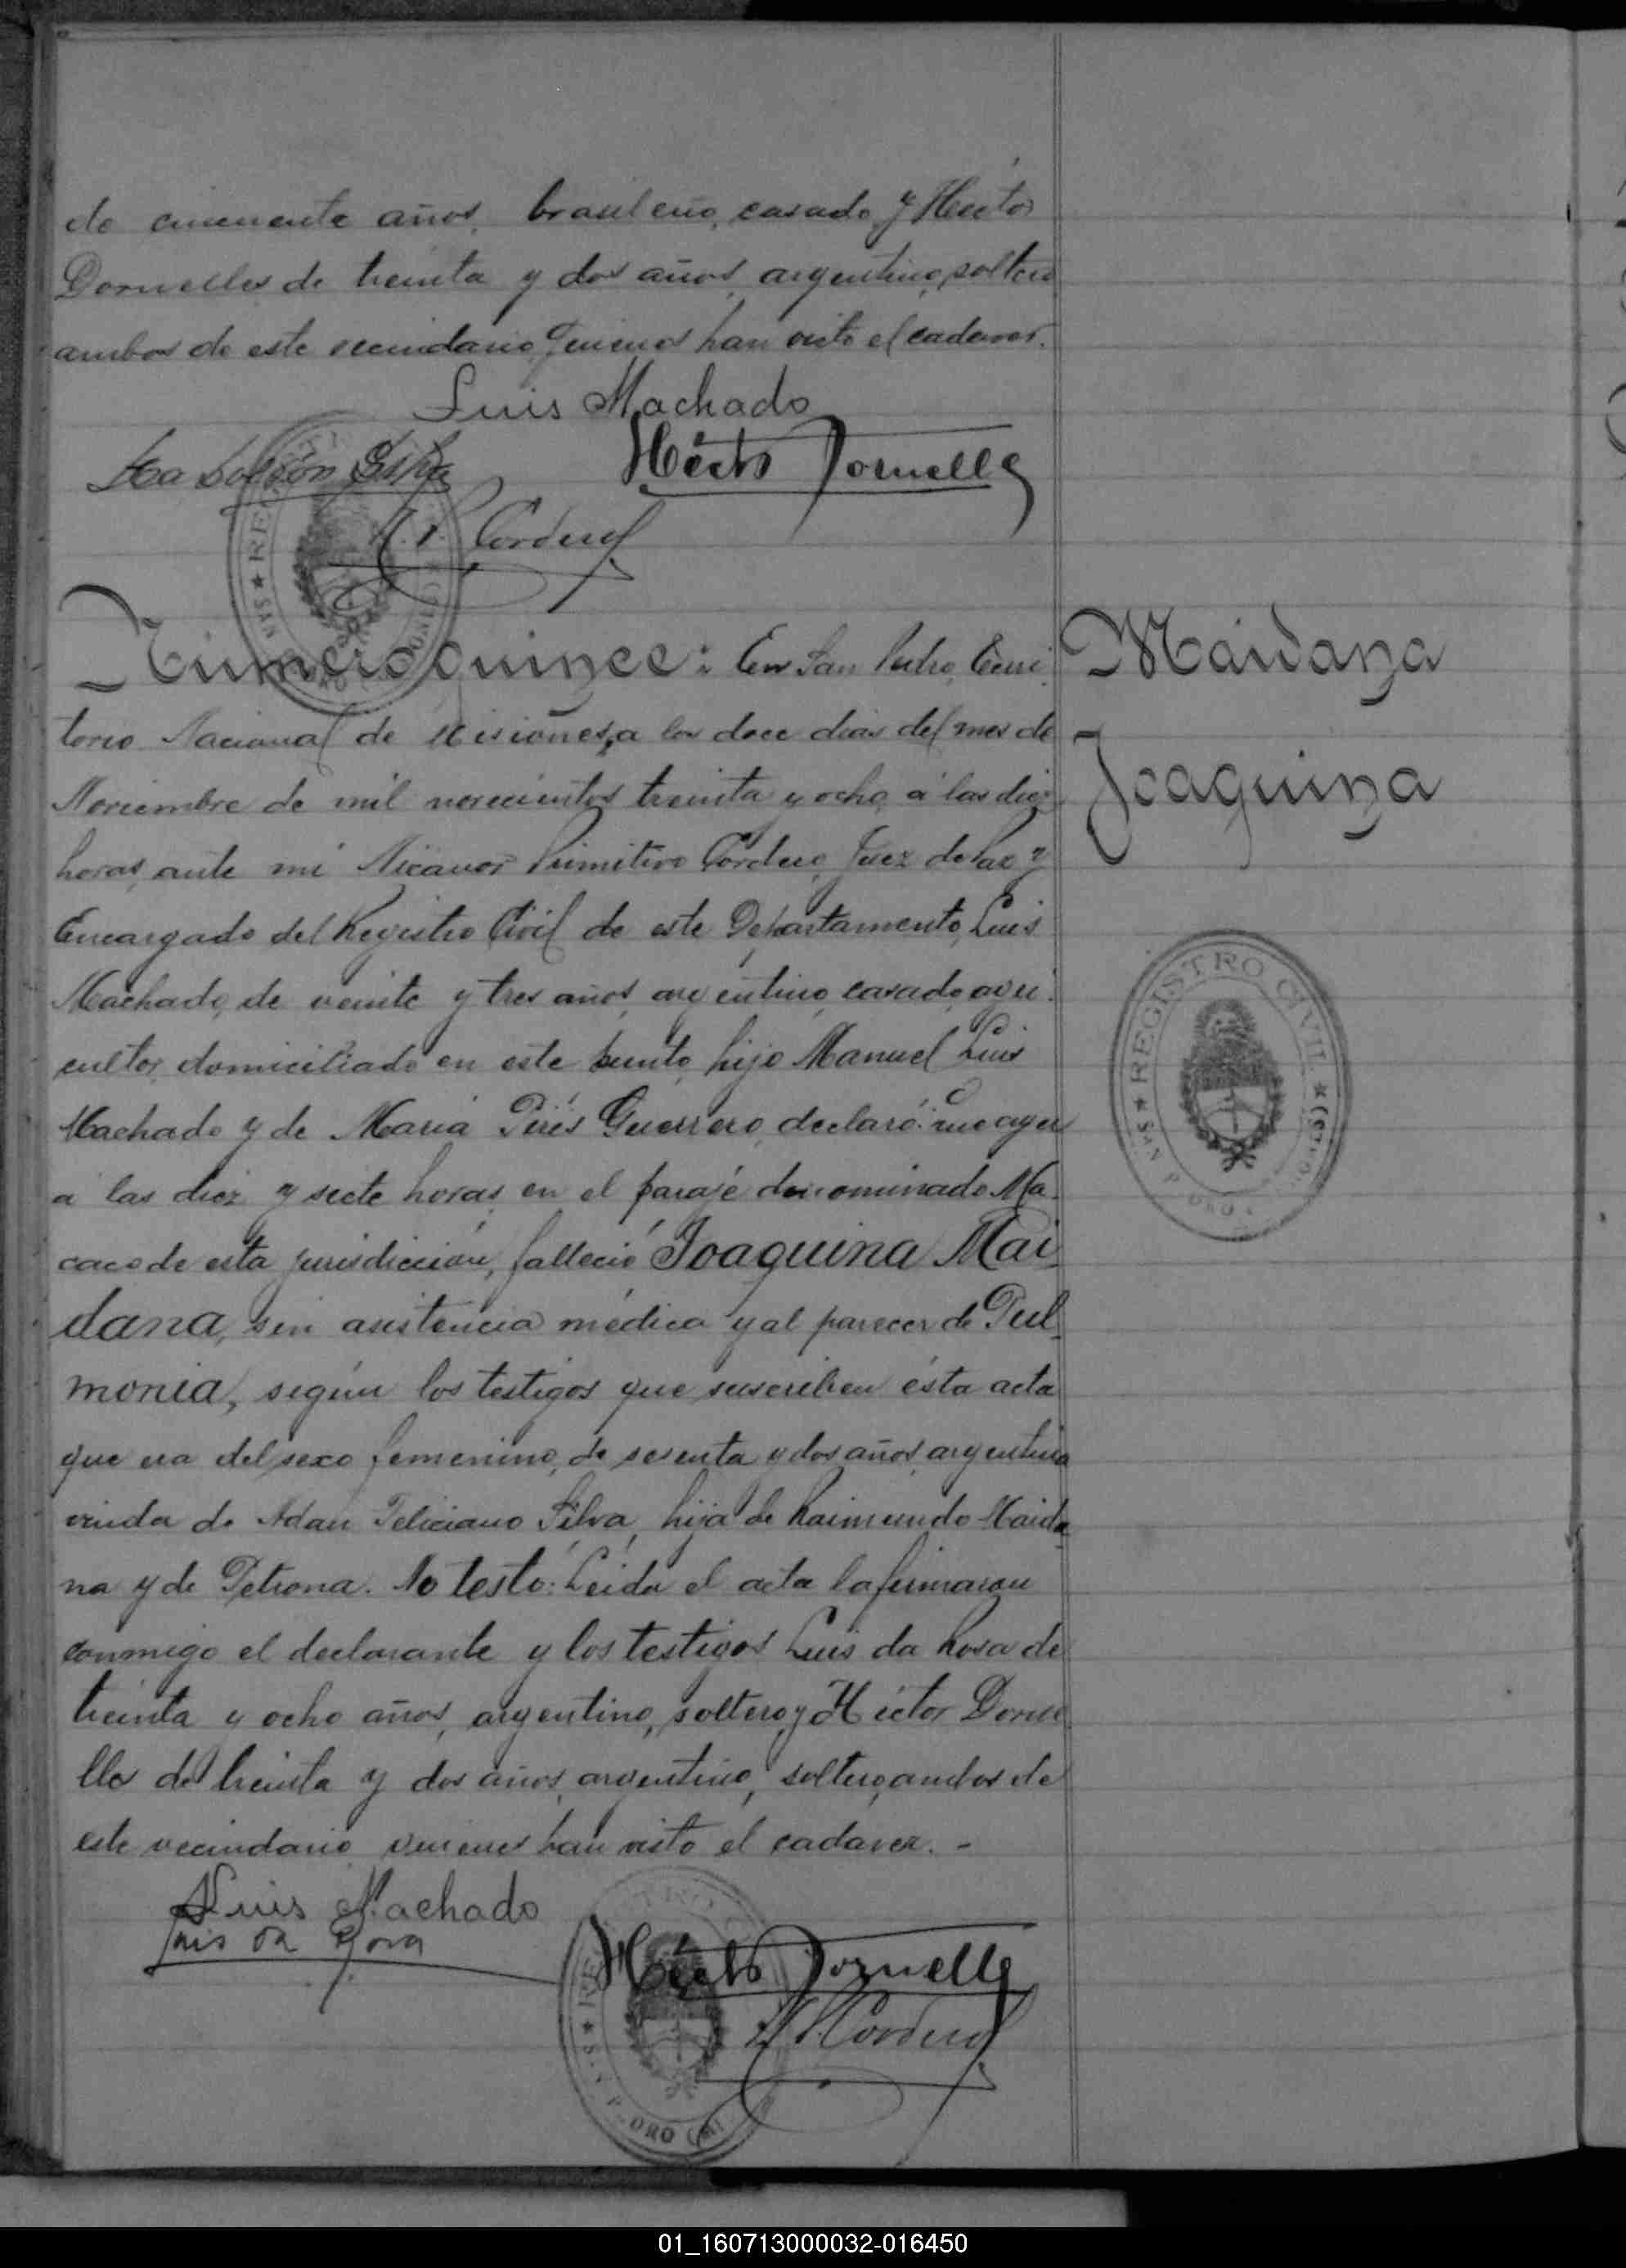 de cincuenta años, brasileño, casado y Hector
Dornelles de treinta y dos años, argentino, soltero
ambos de este vecindario quienes han visto el cadaver.
Luis Machado
Hécto Dornelles
N. P. Cordero
Número quince: En San Pedro, Terri
torio Nacional de Misiones, a los doce dias del mes de
Noviembre de mil novecientos treinta y ocho, á las diez
horas, ante mi Nicanor Primitivo Cordero, Juez de Paz y
Encargado del Registro Civil de este Departamento, Luis
Machado, de veinte y tres años, argentino, casado, agri
cultor, domiciliado en este punto, hijo Manuel Luis
Machado y de Maria Pirés Guerrero, declaró: que ayer
a las diez y siete horas, en el paraje denominado Ma
caco de esta jurisdicción, falleció Joaquina Mai
dana, sin asistencia médica y al parecer de Pul
monia, según los testigos que suscriben ésta acta
que era del sexo femenino, de sesenta y dos años, argentina
viuda de Adan Feliciano Silva, hija de Raimundo Maida
na y de Petrona. No testó: Leida el acta la firmaron
conmigo el declarante y los testigos Luis da Rosa de
treinta y ocho años, argentino, soltero, y Héctor Dorne
lles de treinta y dos años, argentino, soltero, ambos de
este vecindario quienes han visto el cadaver. -
Luis Machado
Luis da Rosa
Hécto Dornelles
N. P. Cordero
Maidana
Joaquina
REGISTRO CIVIL
SAN PEDRO
01_160713000032-016450